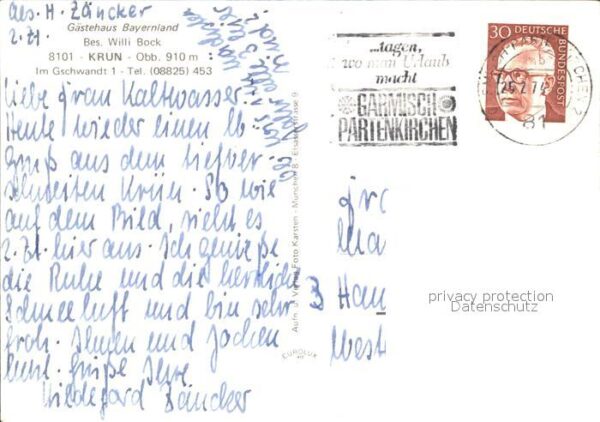 Abs. H. Zäncker
z. Zt.
Gästehaus Bayernland
Bes. Willi Bock
8101 - KRUN - Obb. 910 m
Im Gschwandt 1 - Tel. (08825) 453
Liebe Frau Kaltwasser.
Heute wieder einen lb.
Gruß aus dem tiefver-
schneiten Krün. So wie
auf dem Bild, sieht es
z. Zt. hier aus. Ich genieße
die Ruhe und die herrliche
Schneeluft und bin sehr
froh. Ihnen und Jochen
herzl. Grüße Ihre
Hildegard Zäncker
Aufn. u. Verlag Foto Karsten - München 8 - Elsässerstrasse 9
EUROLUX
...tagen,
wo man Urlaub
macht
GARMISCH
PARTENKIRCHEN
30
DEUTSCHE
BUNDESPOST
81
Fra
3 Han
West
privacy protection
Datenschutz